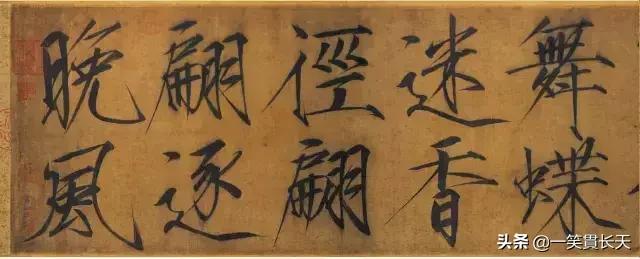 舞蝶
迷香
徑翩
翩逐
晚風
头条 @一笑貫长天